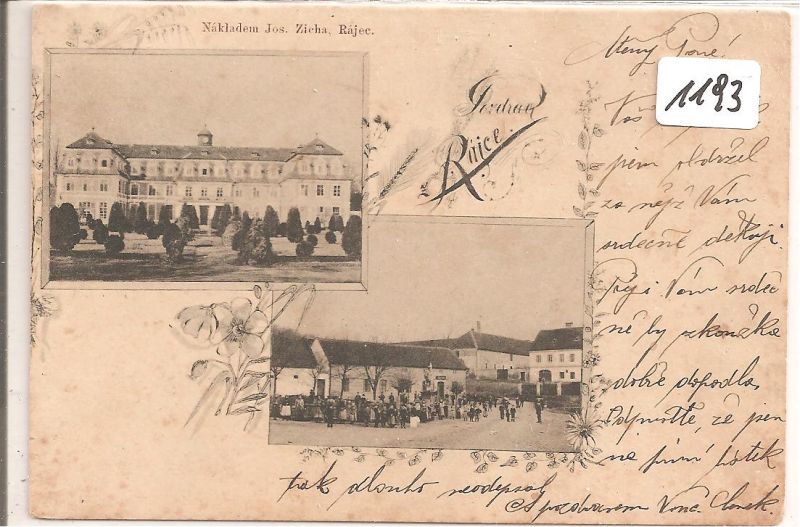 Nákladem Jos. Zicha, Rájec.
Pozdrav
z Rájce.
1193
Ctěný Pane!
Váš
psem obdržel
za nějž Vám
srdečně děkuji.
Přeji Vám srdeč
ně by zkouška
dobře dopadla,
Odpusťte, že jsem
na první lístek
tak dlouho neodepsal
S pozdravem